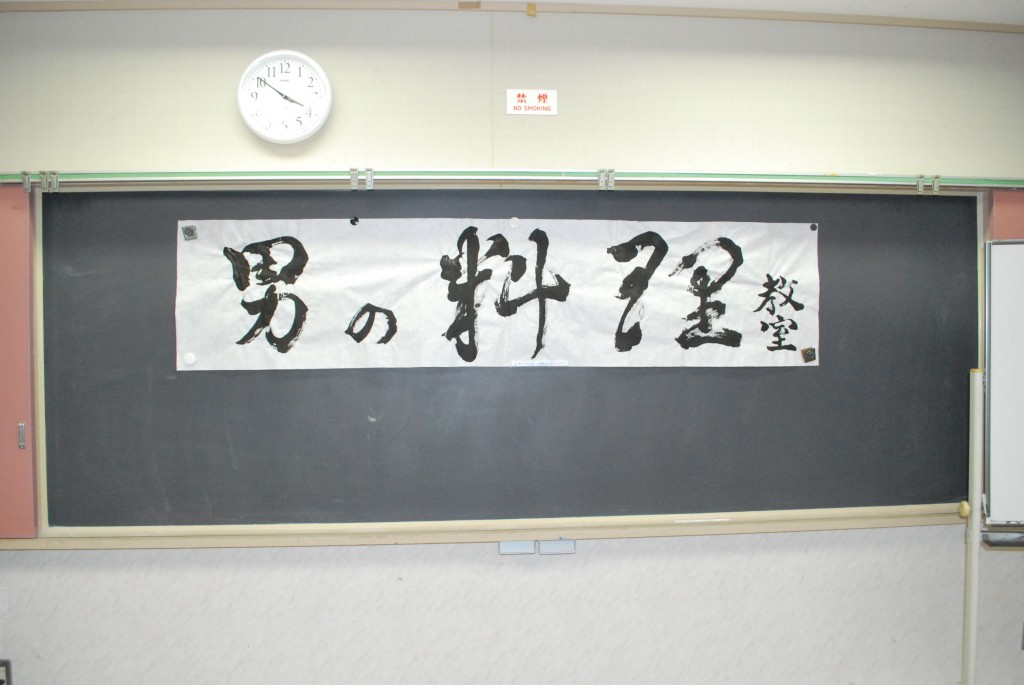 禁煙
NO SMOKING
12
1
2
4
5
9
10
11
男の料理教室